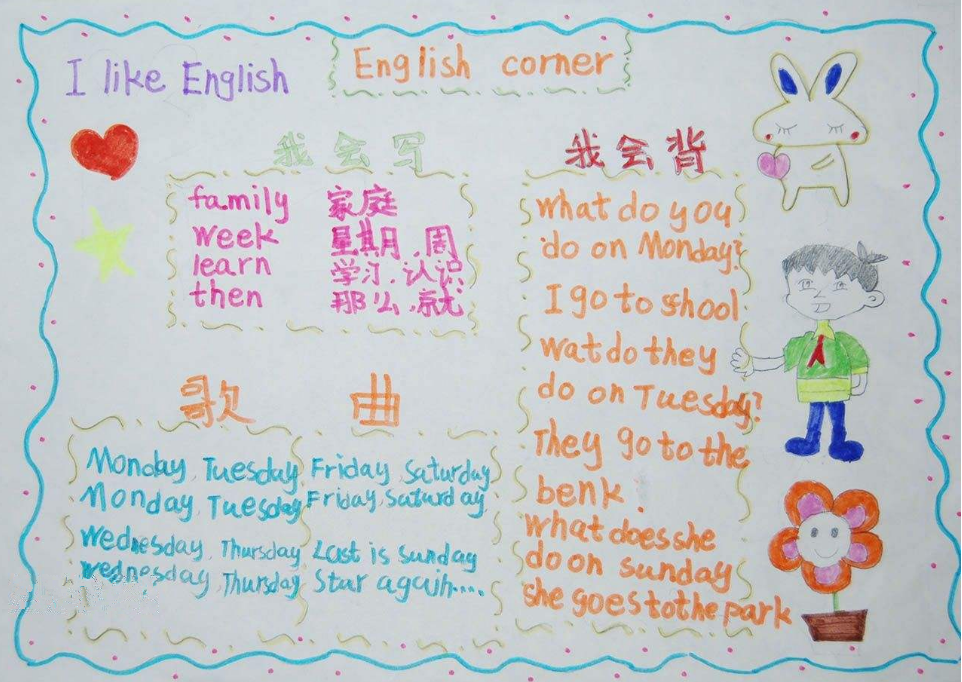 I like English
English corner
我会写
family 家庭
week 星期,周
learn 学习.认识
then 那么.就
我会背
what do you
do on Monday?
I go to shool
wat do they
do on Tuesday?
They go to the
benk.
what does she
do on sunday
she goes to the park
歌曲
Monday, Tuesday, Friday, Saturday
Monday, Tuesday, Friday, Saturday
Wednesday, Thursday, Last is Sunday
wednesday, Thursday, Star again....